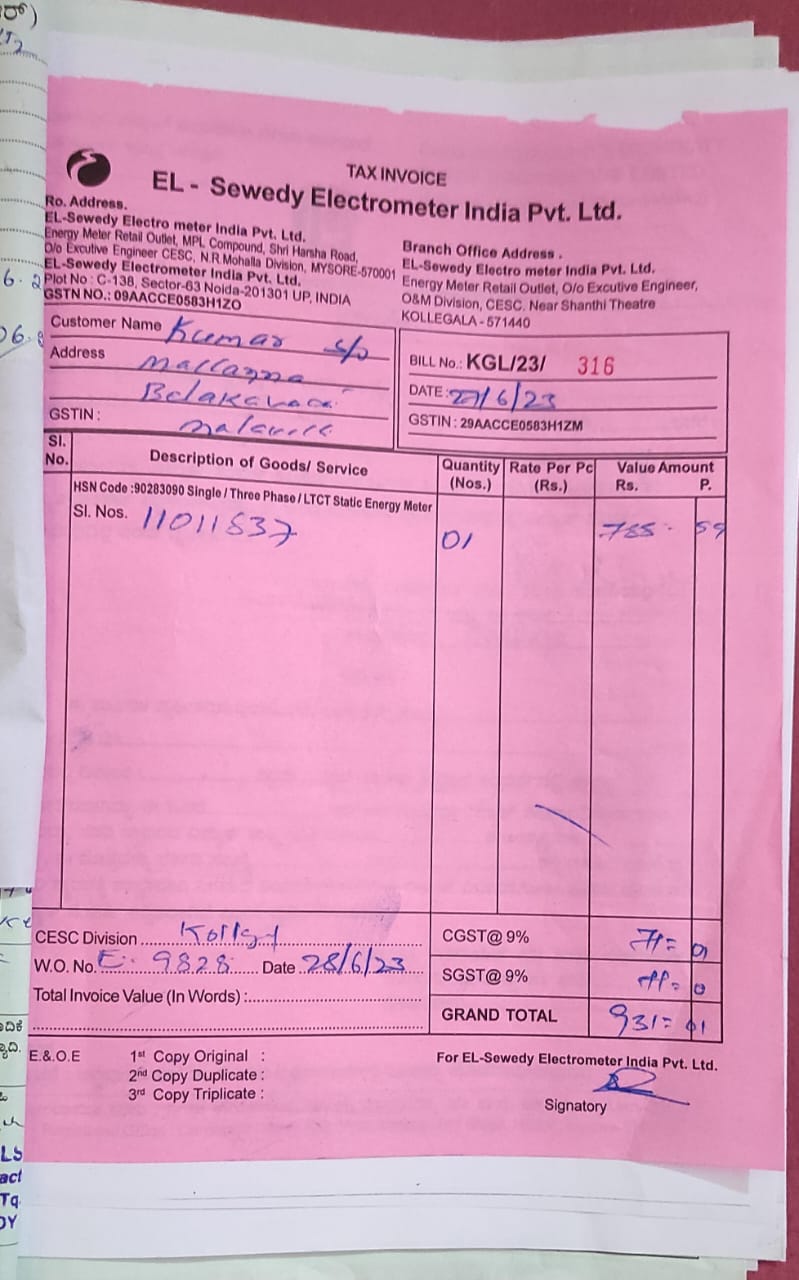 TAX INVOICE
EL - Sewedy Electrometer India Pvt. Ltd.
Ro. Address.
EL-Sewedy Electro meter India Pvt. Ltd.
Energy Meter Retail Outlet, MPL Compound, Shri Harsha Road,
O/o Excutive Engineer CESC, N.R.Mohalla Division, MYSORE-570001
EL-Sewedy Electrometer India Pvt. Ltd.
Plot No : C-138, Sector-63 Noida-201301 UP, INDIA
GSTN NO.: 09AACCE0583H1ZO
Branch Office Address .
EL-Sewedy Electro meter India Pvt. Ltd.
Energy Meter Retail Outlet, O/o Excutive Engineer,
O&M Division, CESC. Near Shanthi Theatre
KOLLEGALA - 571440
Customer Name Kumar S/o
Address Mallanna
GSTIN :
BILL No.: KGL/23/ 316
DATE : 27/6/23
GSTIN : 29AACCE0583H1ZM
Sl. No. Description of Goods/ Service Quantity (Nos.) Rate Per Pc (Rs.) Value Amount Rs. P.
HSN Code :90283090 Single / Three Phase / LTCT Static Energy Meter
Sl. Nos. 11011537 01
CESC Division
W.O. No. E. 9828 Date 28/6/23
Total Invoice Value (In Words) :
CGST@ 9%
SGST@ 9%
GRAND TOTAL 931=
E.&.O.E
1st Copy Original :
2nd Copy Duplicate :
3rd Copy Triplicate :
For EL-Sewedy Electrometer India Pvt. Ltd.
Signatory